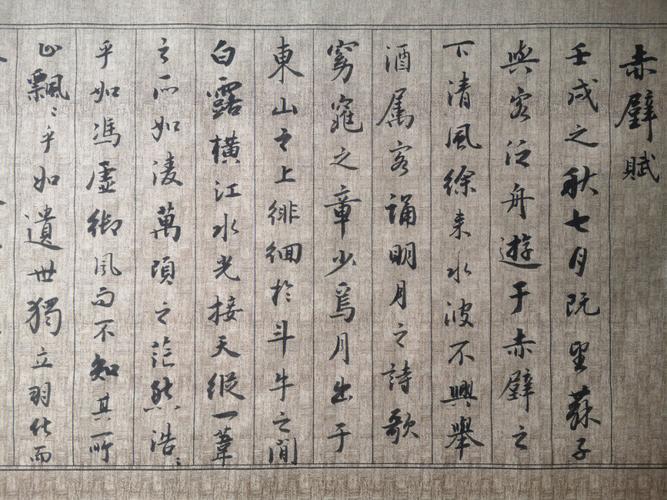 赤壁賦
壬戌之秋七月既望蘇子
與客泛舟遊于赤壁之
下清風徐来水波不興舉
酒属客誦明月之詩歌
窈窕之章少焉月出于
東山之上徘徊於斗牛之間
白露橫江水光接天縱一葦
之所如凌萬頃之茫然浩〻
乎如馮虛御風而不知其所
止飄〻乎如遺世獨立羽化而